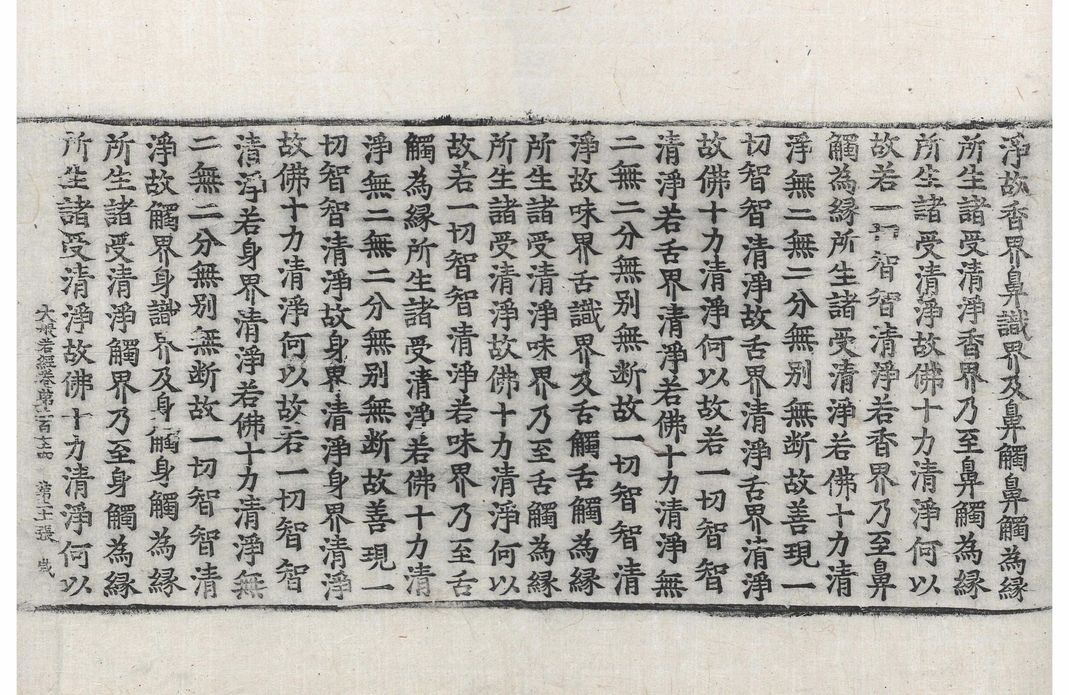 淨故香界鼻識界及鼻觸鼻觸為縁
所生諸受清淨香界乃至鼻觸為縁
所生諸受清淨故佛十力清淨何以
故若一切智智清淨若香界乃至鼻
觸為縁所生諸受清淨若佛十力清
淨無二無二分無别無断故善現一
切智智清淨故舌界清淨舌界清淨
故佛十力清淨何以故若一切智智
清淨若舌界清淨若佛十力清淨無
二無二分無别無断故一切智智清
淨故味界舌識界及舌觸舌觸為縁
所生諸受清淨味界乃至舌觸為縁
所生諸受清淨故佛十力清淨何以
故若一切智智清淨若味界乃至舌
觸為縁所生諸受清淨若佛十力清
淨無二無二分無别無断故善現一
切智智清淨故身界清淨身界清淨
故佛十力清淨何以故若一切智智
清淨若身界清淨若佛十力清淨無
二無二分無别無断故一切智智清
淨故觸界身識界及身觸身觸為縁
所生諸受清淨觸界乃至身觸為縁
所生諸受清淨故佛十力清淨何以
大般若經卷第 百 四 第 張 歲